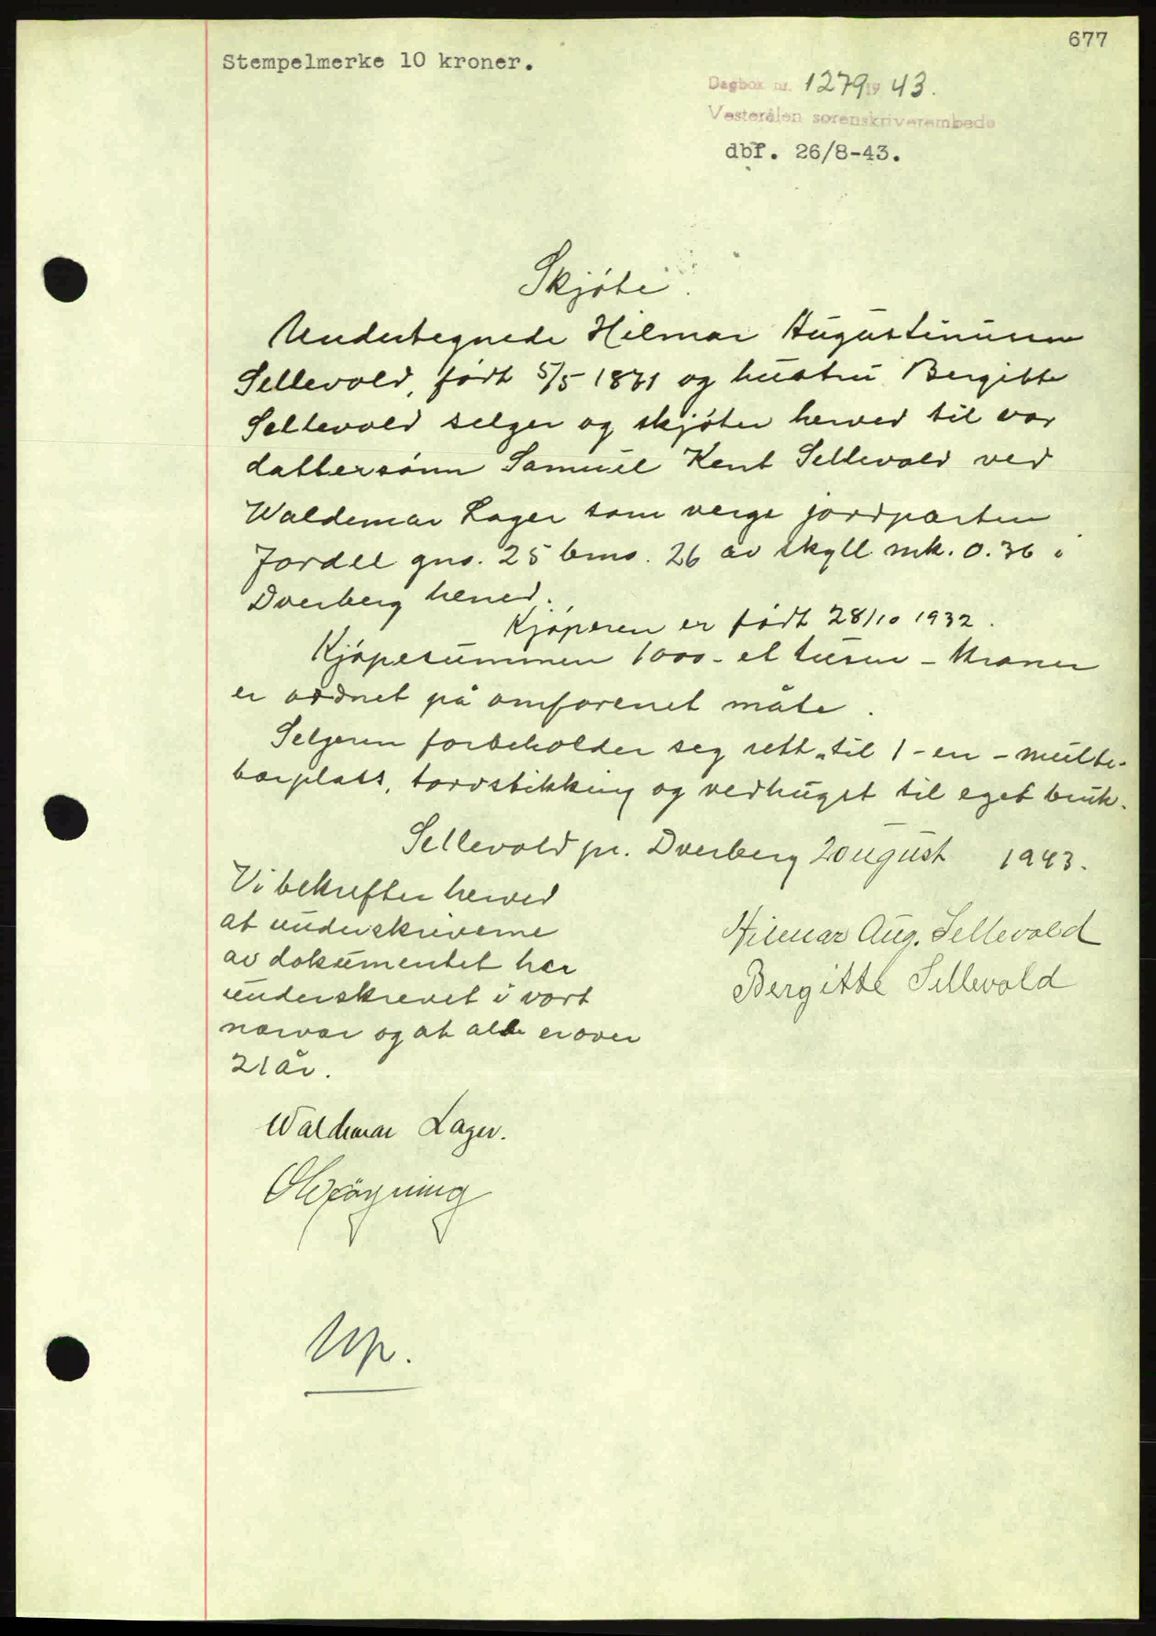 677
Stempelmerke 10 kroner.
Dagbok nr. 1279 19 43.
Vesterålen sorenskriverembede
dbf. 26/8-43.
Skjøte.
Undertegnede Hilmar Augustinussen
Sellevold, født 5/5 1871 og hustru Bergitte
Sellevold selger og skjøter herved til vor
dattersønn Samuel Kent Sellevold ved
Waldemar Lager som verge jordparten
Jordell gno. 25 bno. 26 av skyll mk. 0.36 i
Dverberg herred.
Kjøperen er født 28/10 1932.
Kjøpesummen 1000 - et tusen - kroner
er ordnet på omforenet måte.
Selgeren forbeholder seg rett til 1 - en - multe-
bærplass, torvstikking og vedhugst til eget bruk.
Sellevold pr. Dverberg 20 ugust 1943.
Vi bekrefter herved
at underskriverne
av dokumentet har
underskrevet i vort
nærvær og at alle er over
21 år.
Hilmar Aug. Sellevold
Bergitte Sellevold
Waldemar Lager.